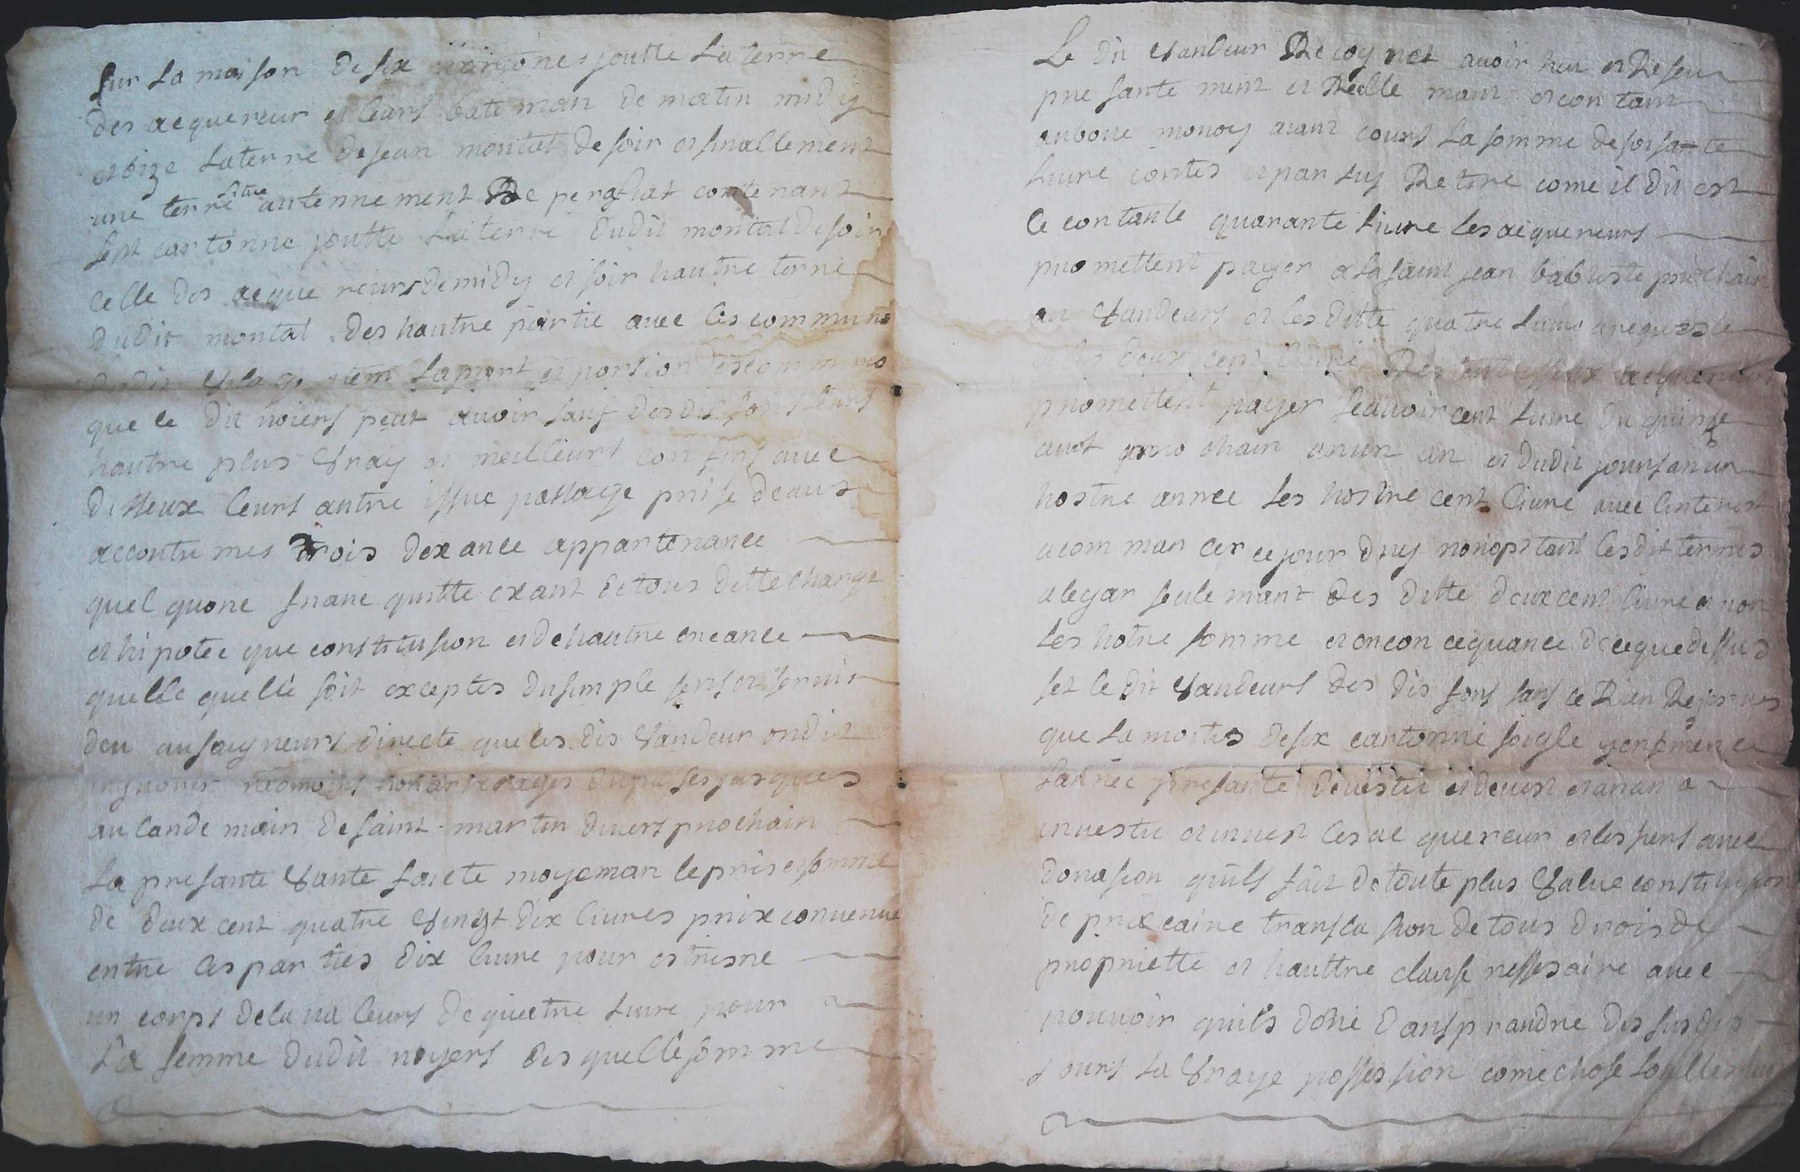 sur la maison de six cartones joutte la terre
des acquereur et leurs batiman de matin midy
et bize la terre de jean montat de soir et finallement
une terre situe au tennement de perghat contenant
sept cartonne joutte la terre dudit montat de soir
celle des acquereurs de midy et soir hautre terre
dudit montat des hautre partie avec les communs
dudit vilage item la part et porsion des communs
que le dit noiers peut avoir sauf desdis fons leurs
hautre plus vray et meilleurs confins avec
disseux leurs antre issue passage prise deaux
accoutumes drois dexance appartenance
quel quone franc quitte exant de tous dette charge
et hipotec que constitusion et de hautre creance
quelle quelle soit exceptes du simple sens et servis
deu au saigneurs directe que les dis vandeur on dit
ignorer neomoins non arrerages du passe jusques
au lande main de saint martin divers prochain
La presante vante faicte moyeman le pris et somme
de deux cent quatre vingt dix livres prix convenue
entre les parties dix livre pour estresne
un corps de la valeurs de quatre livre pour
la femme dudit noyers des quelle somme
Le dit vandeur Recognet avoir heu et Reseu
presantement et Reelle mant et contant
en bone monoy aiant cours la somme de soisante
livre contes et par luy Retire come il dit est
Ce contante quarante livre les acquereurs
promettent payer a la saint jean babtiste prochain
au vandeurs et les ditte quatre livre
et les deux cent livre Restent acquereurs
promettent payer seavoir cent livre du quinse
aust prochain an un an et dudit jours an un
hostre annee les hostre cent livre avec linterest
a commancer ce jour duy nonopstant les dit termes
a legar seule mant des ditte deux cent livre et non
les hotre somme et on consequance de ceque dessus
set le dit vandeurs des dis fons sans ce Rien Reserves
que la moities de six cartonne soigle
lannee presante devestu et devest et an a
investu et invest les acquereur et les siens avec
donasion quils fait de toute plus value constitusion
de precaire translasion de tous drois de
propriette et hauttre clause nessesaire avec
pouvoir quils done dans prandre des sus dis
fons la vraye possession come chose